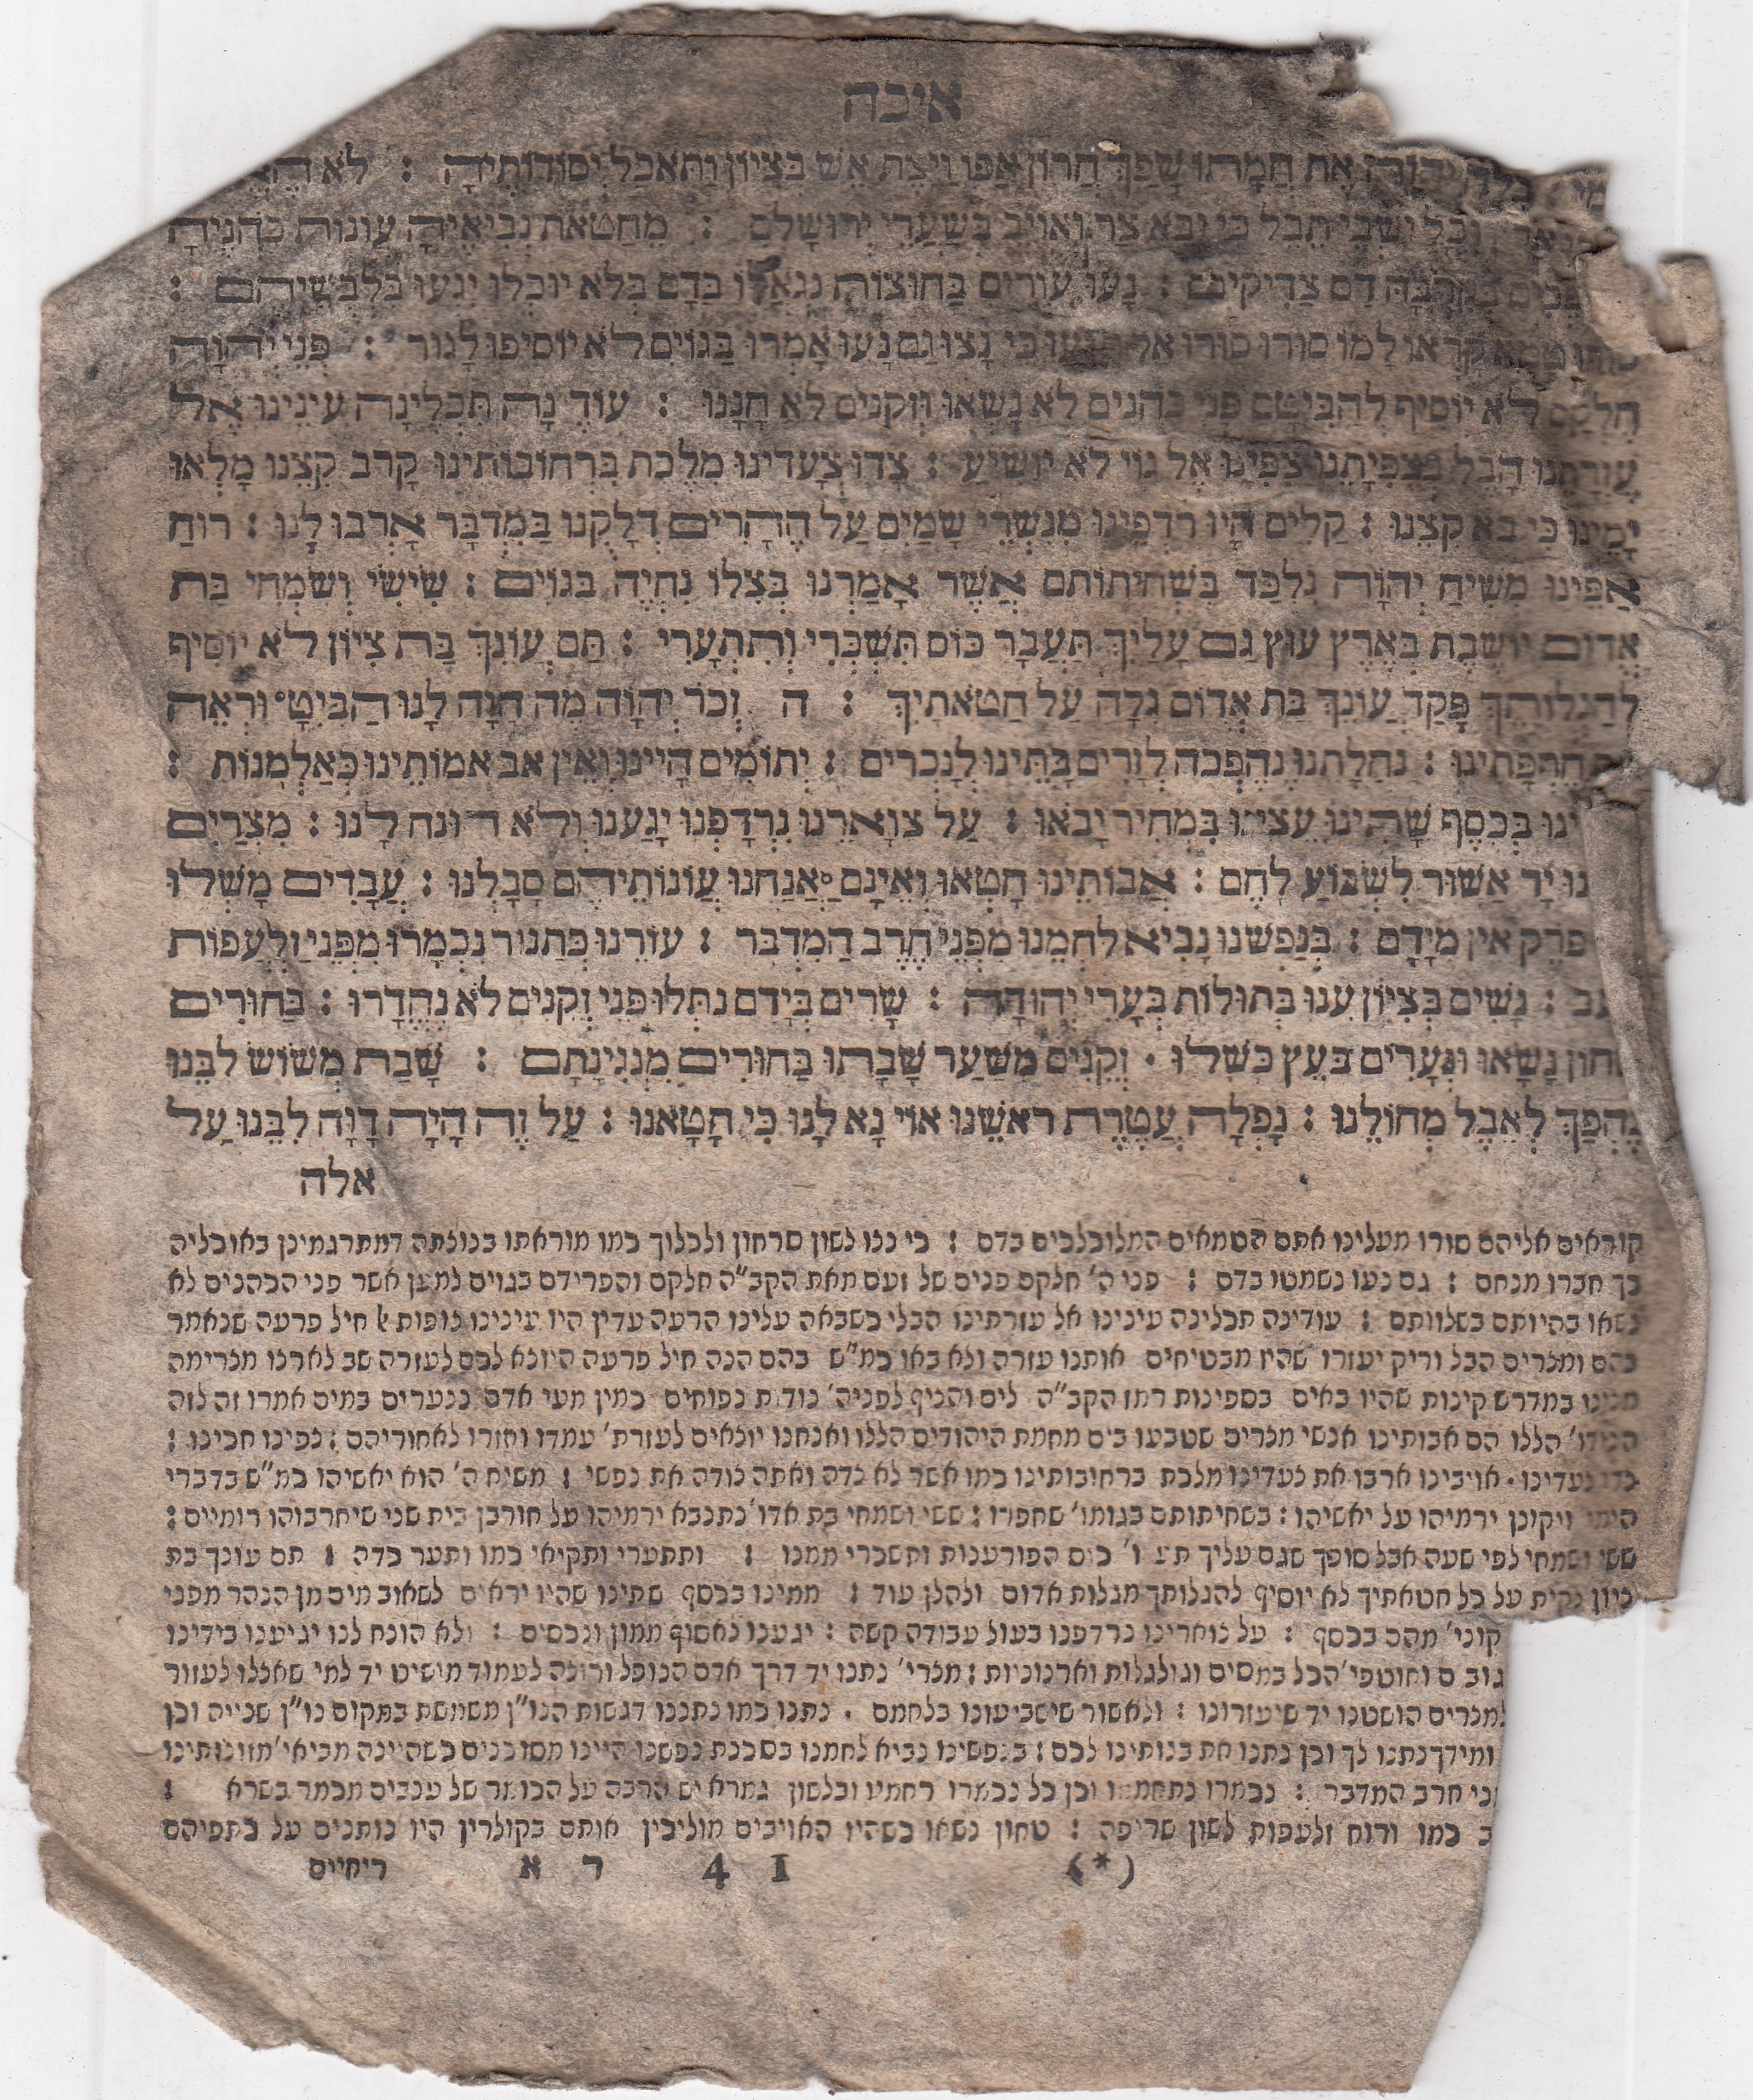 איכה
יְהוָה אֶת חֲמָתוֹ שָׁפַךְ חֲרוֹן אַפּוֹ וַיַּצֶּת אֵשׁ בְּצִיּוֹן וַתֹּאכַל יְסוֹדוֹתֶיהָ : לֹא
וְכֹל יֹשְׁבֵי תֵבֵל כִּי יָבֹא צַר וְאוֹיֵב בְּשַׁעֲרֵי יְרוּשָׁלִָם : מֵחַטֹּאת נְבִיאֶיהָ עֲוֹנוֹת כֹּהֲנֶיהָ
בְּקִרְבָּהּ דַּם צַדִּיקִים : נָעוּ עִוְרִים בַּחוּצוֹת נְגֹאֲלוּ בַּדָּם בְּלֹא יוּכְלוּ יִגְּעוּ בִּלְבֻשֵׁיהֶם :
קָרְאוּ לָמוֹ סוּרוּ סוּרוּ אַל תִּגָּעוּ כִּי נָצוּ גַּם נָעוּ אָמְרוּ בַּגּוֹיִם לֹא יוֹסִיפוּ לָגוּר : פְּנֵי יְהוָה
חִלְּקָם לֹא יוֹסִיף לְהַבִּיטָם פְּנֵי כֹהֲנִים לֹא נָשָׂאוּ וּזְקֵנִים לֹא חָנָנוּ : עוֹדֵינָה תִּכְלֶינָה עֵינֵינוּ אֶל
עֶזְרָתֵנוּ הָבֶל בְּצִפִּיָּתֵנוּ צִפִּינוּ אֶל גּוֹי לֹא יוֹשִׁיעַ : צָדוּ צְעָדֵינוּ מִלֶּכֶת בִּרְחוֹבוֹתֵינוּ קָרַב קִצֵּנוּ מָלְאוּ
יָמֵינוּ כִּי בָא קִצֵּנוּ : קַלִּים הָיוּ רֹדְפֵינוּ מִנִּשְׁרֵי שָׁמָיִם עַל הֶהָרִים דְּלָקֻנוּ בַּמִּדְבָּר אָרְבוּ לָנוּ : רוּחַ
אַפֵּינוּ מְשִׁיחַ יְהוָה נִלְכַּד בִּשְׁחִיתוֹתָם אֲשֶׁר אָמַרְנוּ בְּצִלּוֹ נִחְיֶה בַגּוֹיִם : שִׂישִׂי וְשִׂמְחִי בַּת
אֱדוֹם יוֹשֶׁבֶת בְּאֶרֶץ עוּץ גַּם עָלַיִךְ תַּעֲבָר כּוֹס תִּשְׁכְּרִי וְתִתְעָרִי : תַּם עֲוֹנֵךְ בַּת צִיּוֹן לֹא יוֹסִיף
לְהַגְלוֹתֵךְ פָּקַד עֲוֹנֵךְ בַּת אֱדוֹם גִּלָּה עַל חַטֹּאתָיִךְ : ה זְכֹר יְהוָה מֶה הָיָה לָנוּ הַבִּיטָ וּרְאֵה
חֶרְפָּתֵינוּ : נַחֲלָתֵנוּ נֶהֶפְכָה לְזָרִים בָּתֵּינוּ לְנָכְרִים : יְתוֹמִים הָיִינוּ וְאֵין אָב אִמּוֹתֵינוּ כְּאַלְמָנוֹת :
בְּכֶסֶף שָׁתִינוּ עֵצֵינוּ בִּמְחִיר יָבֹאוּ : עַל צַוָּארֵנוּ נִרְדָּפְנוּ יָגַעְנוּ וְלֹא הוּנַח לָנוּ : מִצְרַיִם
נוּ יָד אַשּׁוּר לִשְׂבּוֹעַ לָחֶם : אֲבוֹתֵינוּ חָטְאוּ וְאֵינָם אֲנַחְנוּ עֲוֹנוֹתֵיהֶם סָבָלְנוּ : עֲבָדִים מָשְׁלוּ
פֹּרֵק אֵין מִיָּדָם : בְּנַפְשֵׁנוּ נָבִיא לַחְמֵנוּ מִפְּנֵי חֶרֶב הַמִּדְבָּר : עוֹרֵנוּ כְּתַנּוּר נִכְמָרוּ מִפְּנֵי זַלְעֲפוֹת
עָב : נָשִׁים בְּצִיּוֹן עִנּוּ בְּתוּלוֹת בְּעָרֵי יְהוּדָה : שָׂרִים בְּיָדָם נִתְלוּ פְּנֵי זְקֵנִים לֹא נֶהְדָּרוּ : בַּחוּרִים
טְחוֹן נָשָׂאוּ וּנְעָרִים בָּעֵץ כָּשָׁלוּ . זְקֵנִים מִשַּׁעַר שָׁבָתוּ בַּחוּרִים מִנְּגִינָתָם : שָׁבַת מְשׂוֹשׂ לִבֵּנוּ
נֶהְפַּךְ לְאֵבֶל מְחוֹלֵנוּ : נָפְלָה עֲטֶרֶת רֹאשֵׁנוּ אוֹי נָא לָנוּ כִּי חָטָאנוּ : עַל זֶה הָיָה דָוֶה לִבֵּנוּ עַל
אלה
קוראים אליהם סורו מעלינו אתם הטמאים המלוכלכים בדם : כי נצו לשון סרחון ולכלוך כמו מוראתו בנוצתה דמתרגמינן באוכליה
כך חברו מנחם : גם נעו נשמטו בדם : פני ה' חלקם פנים של זעם מאת הקב"ה חלקם והפרידם בגוים למען אשר פני הכהנים לא
נשאו בהיותם בשלוותם : עודינה תכלינה עינינו אל עזרתינו הבלי כשבאה עלינו הרעה עדין היו עינינו צופות אל חיל פרעה שנאמר
בהם ומצרים הבל וריק יעזרו שהיו מבטיחים אותנו עזרה ולא באו כמ"ש בהם הנה חיל פרעה היוצא לכם לעזרה שב לארצו מצרימה
מצינו במדרש קינות שהיו באים בספינות רמז הקב"ה לים והציף לפניה' נודות נפוחים כמין מעי אדם ננערים במים אמרו זה לזה
הללו הם אבותינו אנשי מצרים שטבעו בים מחמת היהודים הללו ואנחנו יוצאים לעזרת' עמדו וחזרו לאחוריהם : צפינו חכינו :
צדו צעדינו . אויבינו ארבו את צעדינו מלכת ברחובותינו כמו אשר לא צדה ואתה צודה את נפשי : משיח ה' הוא יאשיהו כמ"ש בדברי
הימי ויקונן ירמיהו על יאשיהו : בשחיתותם בגומו' שחפרו : ששי ושמחי בת אדו' נתנבא ירמיהו על חורבן בית שני שיחרבוהו רומיים :
ששי ושמחי לפי שעה אבל סופך שגם עליך כוס הפורענות ותשכרי ממנו : ותתערי ותקיאי כמו ותער כדה : תם עונך בת
ציון נקית על כל חטאתיך לא יוסיף להגלותך מגלות אדום ולהלן עוד : ממינו בכסף שתינו שהיו יראים לשאוב מים מן הנהר מפני
קוני' מהם בכסף : על צוארינו נרדפנו בעול עבודה קשה : יגענו לאסוף ממון ונכסים : ולא הונח לנו יגיענו בידינו
וחוטפי' הכל במסים וגולגלות וארנוניות : מצרי' נתנו יד דרך אדם הנופל ורוצה לעמוד מושיט יד למי שאצלו לעזור
למצרים הושטנו יד שיעזרונו : ולאשור שישביעונו בלחמם . נתנו כמו נתננו דגשות הנו"ן משמשת במקום נו"ן שנייה וכן
ומידך נתנו לך וכן נתנו את בנותינו לכם : בנפשינו נביא לחמנו בסכנת נפשנו היינו מסוכנים כשהיינה מביאי' מזונותינו
ני חרב המדבר : נכמרו נתחממו וכן כל נכמרו רחמיו ובלשון גמרא יש הרבה על הכומר של ענבים מכמר בשרא :
ב כמו ורוח זלעפות לשון שריפה : טחון נשאו כשהיו האויבים מוליכין אותם בקולרין היו נותנים על כתפיהם
(*) I 4 ר א ריחיים